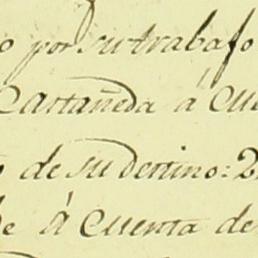 o por su trabajo
Castañeda á cue
de su destino: 2
de á cuenta de